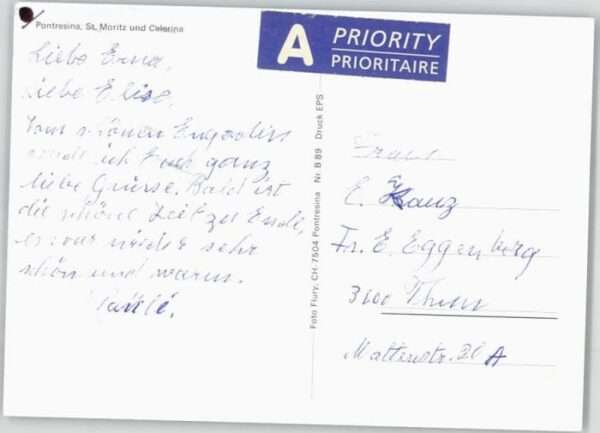 Pontresina, St. Moritz und Celerina
A PRIORITY
PRIORITAIRE
Liebe Erna,
Liebe Elise,
Vom schönen Engadin
sende ich Euch ganz
liebe Grüsse. Bald ist
die schöne Zeit zu Ende,
es war wieder sehr
schön und warm.
Foto Flury, CH-7504 Pontresina Nr. B 89 Druck EPS
E. Kanz
Fr. E. Eggenberg
3600 Thun
Mattenstr. A